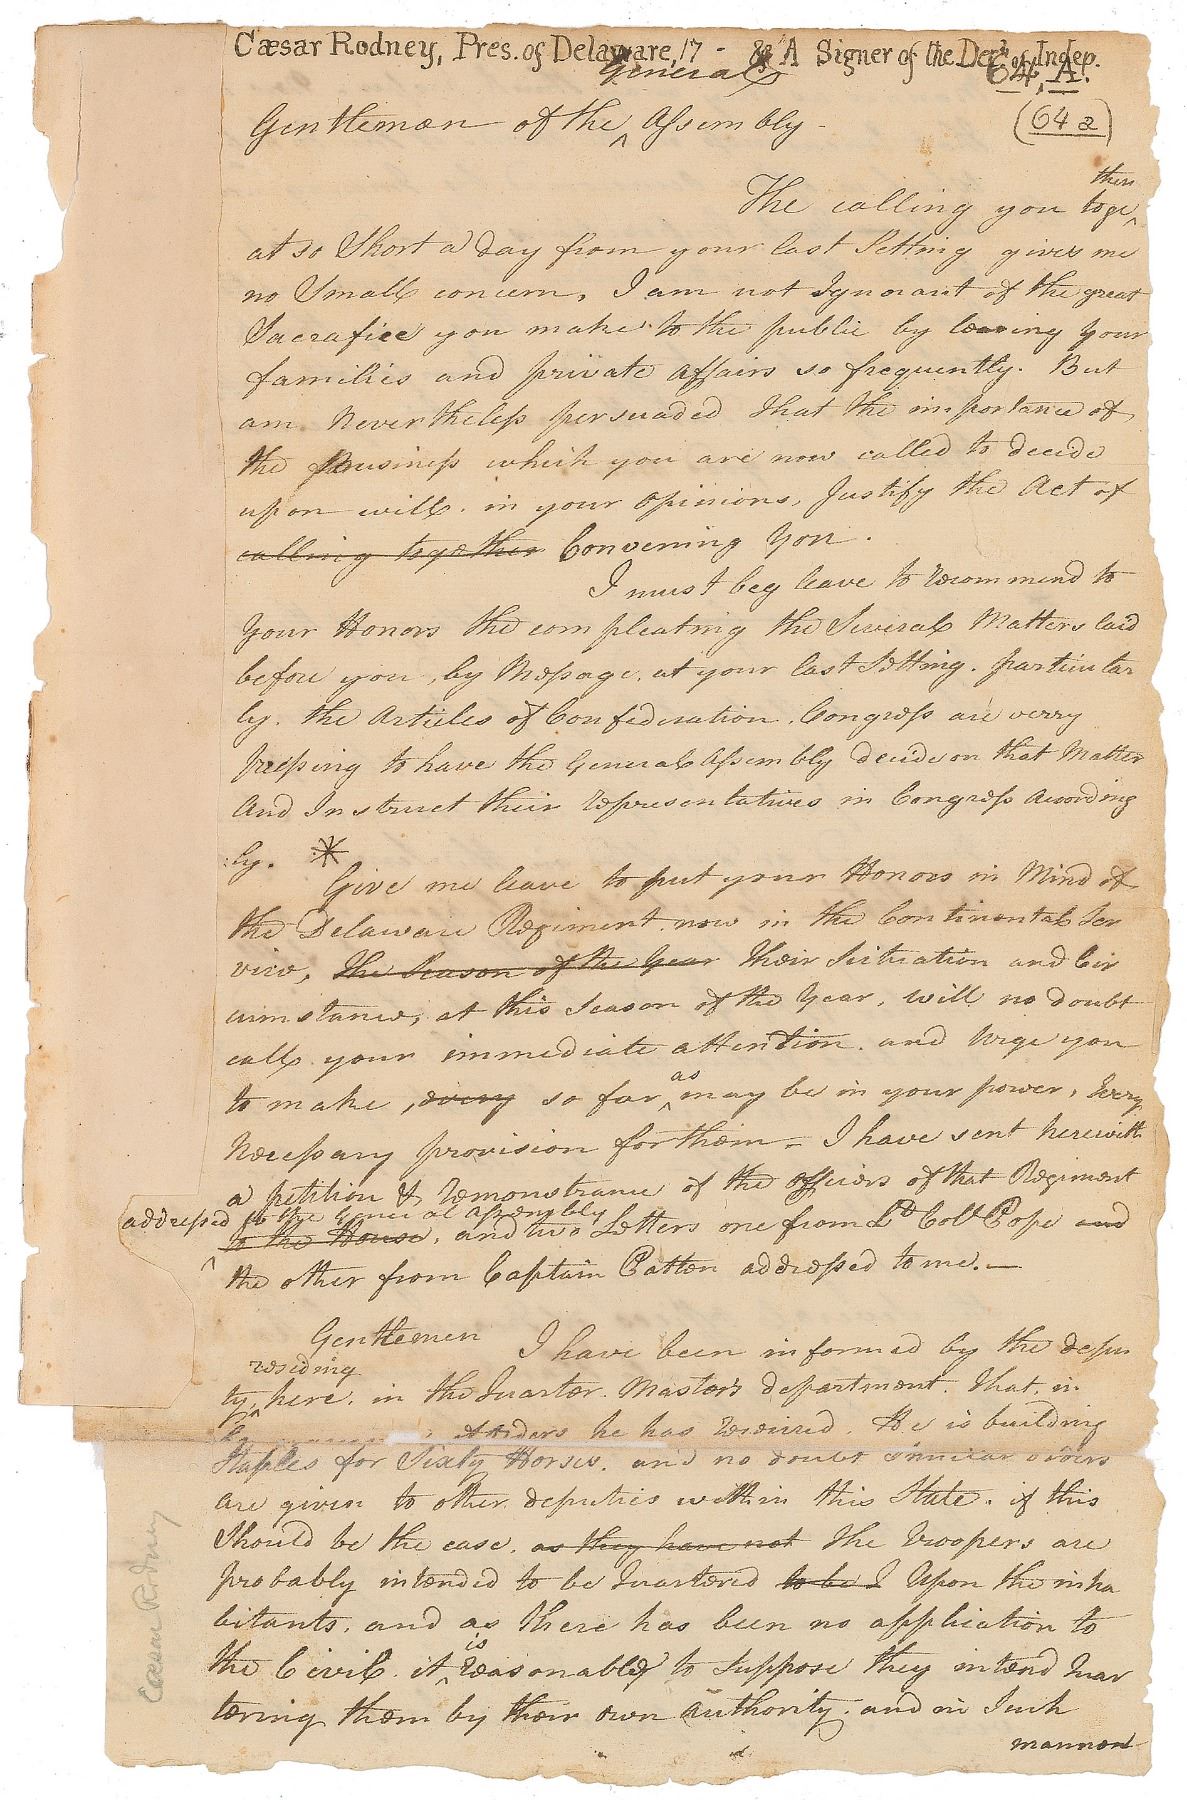 Cæsar Rodney, Pres. of Delaware, 17 - & A Signer of the Decn of Indep.
64, A.
General
Gentlemen of the ^ Assembly - (64 a)
then
The calling you toge ^
at so Short a day from your last Setting gives me
no Small concern, I am not Ignorant of the great
Sacrafice you make to the public by leaving your
families and private affairs so frequently. But
am Nevertheless persuaded that the importance of
the Business which you are now called to decide
upon will in your opinions, Justify the Act of
calling together Convening You.
I must beg leave to recommend to
Your Honors the compleating the Several Matters laid
before you, by Message, at your last Setting. particular
ly. the Articles of Confederation. Congress are verry
pressing to have the General Assembly decide on that Matter
And Instruct their representatives in Congress According
:ly. *
Give me leave to put your Honors in Mind of
the Delaware Regiment now in the Continental Ser
vice, The Season of the Year Their Situation and Cir
cumstances, at this Season of the Year, will no doubt
call your immediate attention and Urge you
as
to make, every so far ^ may be in your power, every
Necessary provision for them = I have sent herewith
a petition & remonstrance of the officers of that Regiment
addressed to the General Assembly
^ to the House, and two Letters one from Lt Coll Pope and
the other from Captain Patten addressed to me. —
Gentlemen I have been informed by the depu
residing
ty ^ here, in the Quarter Master's department. That, in
orders he has received. He is building
Stables for Sixty Horses, and no doubt similar orders
are given to other deputies within this State. if this
Should be the case, as they have not the Troopers are
probably intended to be Quartered to be I Upon the inha
bitants, and as there has been no application to
is
the Civil it ^ reasonable to suppose they intend Quar
tering them by their own authority. and in Such
manner
Cæsar Rodney